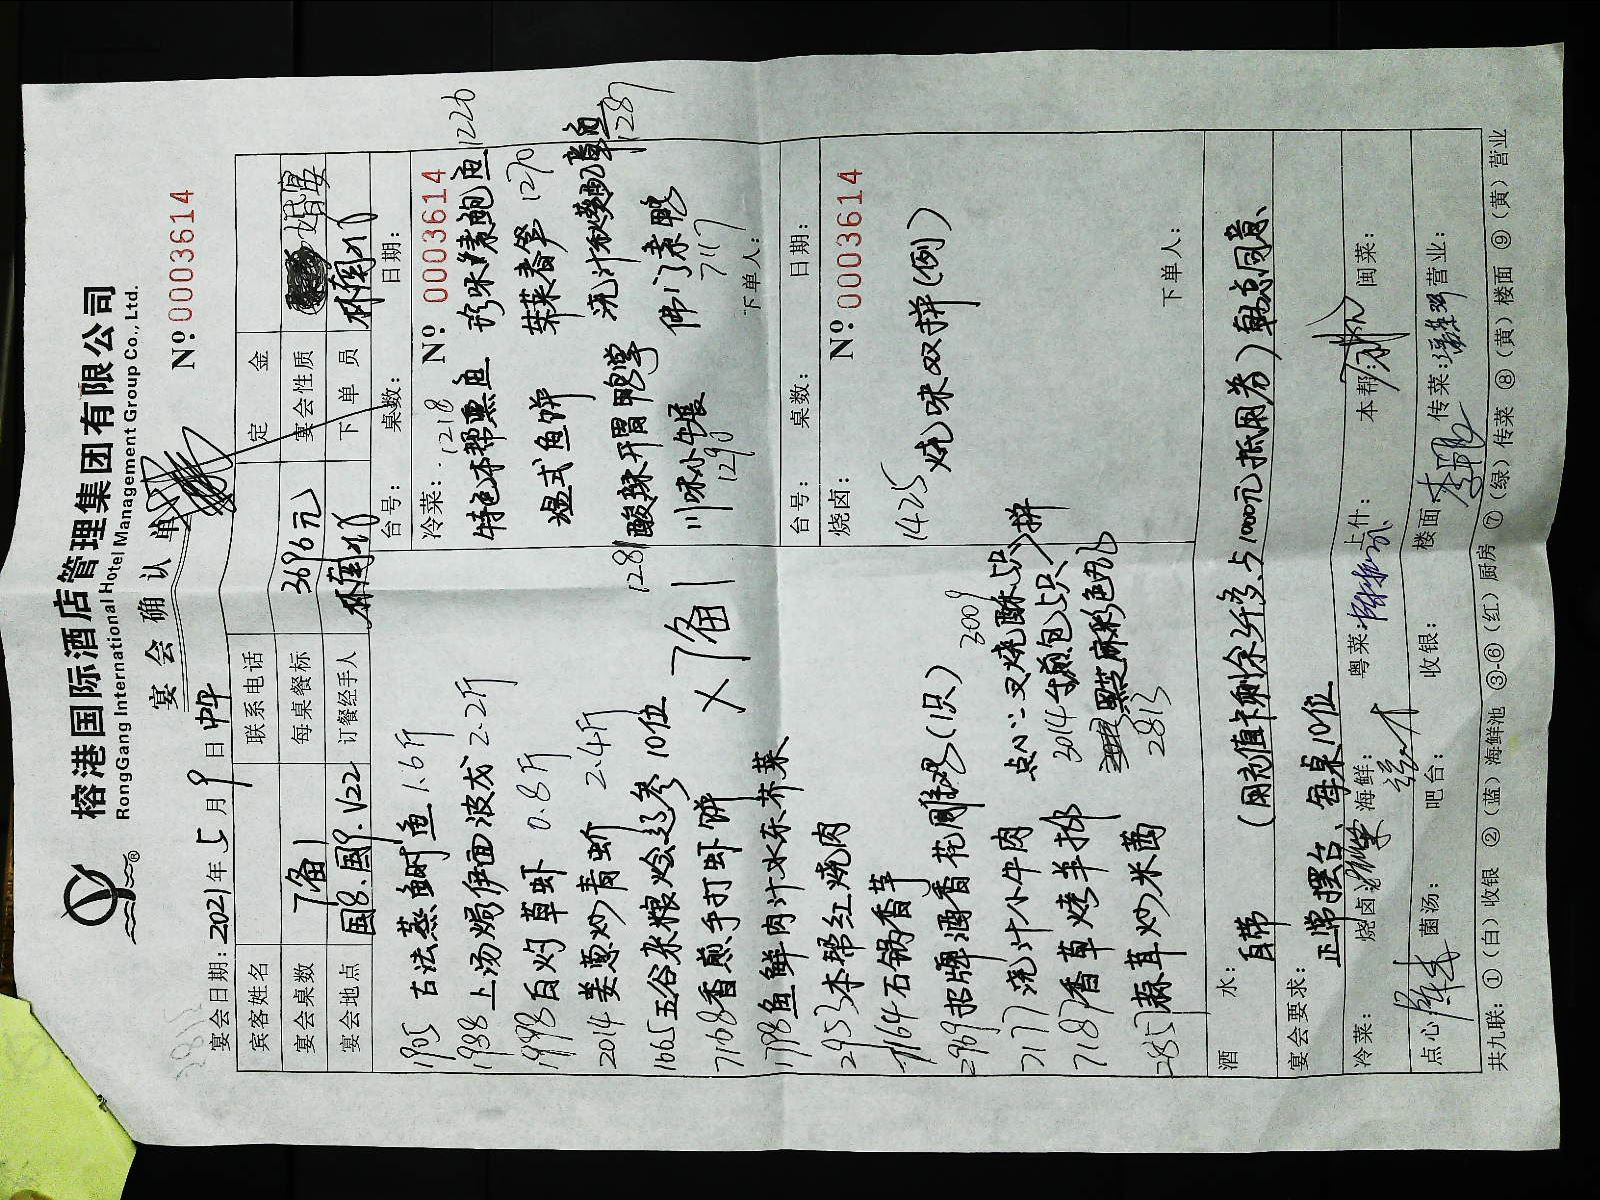 榕港国际酒店管理集团有限公司
RongGang International Hotel Management Group Co., Ltd.
宴会确认单
Nº 0003614
宴会日期: 2021年5月9日 中午
宾客姓名 联系电话 定金
宴会桌数 7备1 每桌餐标 3696元 宴会性质 婚宴
宴会地点 国8.国9.V22 订餐经手人 下单员
台号: 桌数: 日期:
冷菜: Nº 0003614
1218 特色本帮熏鱼
1226
温式鱼饼
1270
1281 酸辣开胃鸭掌
1287
川味小牛展 1290
佛门素鸭 7117
下单人:
1905 古法蒸鲥鱼 1.6斤
1938 上汤焗伊面波龙 2.2斤
1998 白灼草虾 0.8斤
2014 姜葱炒青蚧 2.4斤
1665 五谷杂粮烩辽参 10位
7168 香煎手打虾饼
× 7备1
1798 鱼鲜肉汁水东芥菜
2953 本帮红烧肉
7164 石锅香芋
2969 招牌酒香花雕鸡(1只)
7177 浇汁小牛肉
7187 香草烤羊排
2857 蒜茸炒米苋
3009 点心: 叉烧酥 拼
3014 生煎包
黑芝麻彩色丸 2813
台号: 桌数: 日期:
烧卤: Nº 0003614
1425 烧味双拼(例)
下单人:
酒水: 自带
宴会要求: 正常摆台、每桌10位
冷菜: 烧卤: 海鲜: 粤菜: 上什: 本帮: 闽菜:
点心: 菌汤: 吧台: 收银: 楼面 传菜: 营业:
共九联: ①(白)收银 ②(蓝)海鲜池 ③-⑥(红)厨房 ⑦(绿)传菜 ⑧(黄)楼面 ⑨(黄)营业